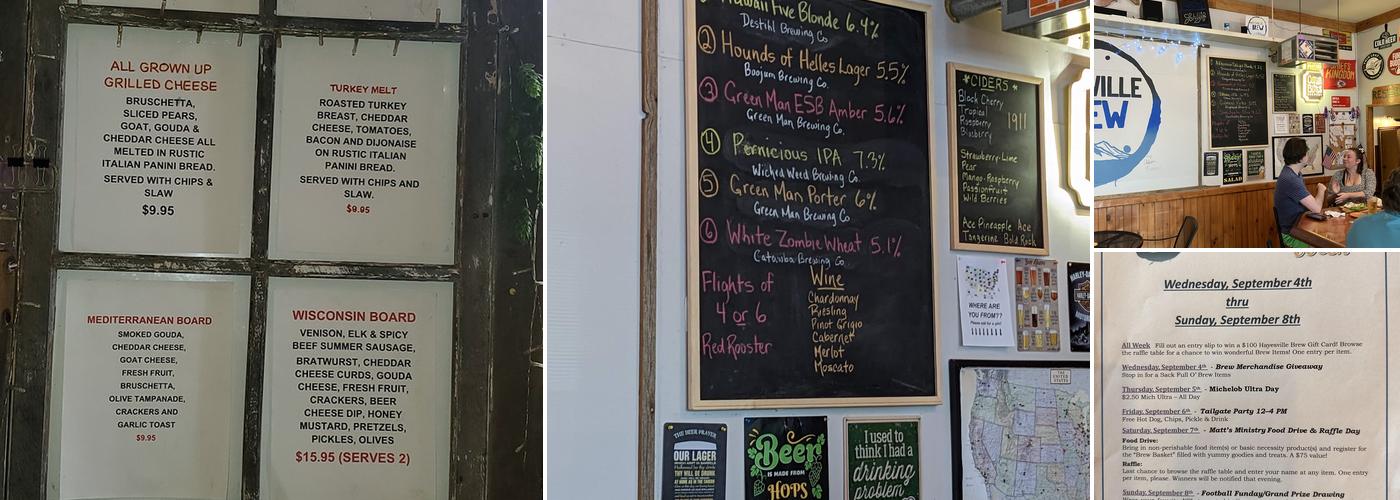 ALL GROWN UP
GRILLED CHEESE
BRUSCHETTA,
SLICED PEARS,
GOAT, GOUDA &
CHEDDAR CHEESE ALL
MELTED IN RUSTIC
ITALIAN PANINI BREAD.
SERVED WITH CHIPS &
SLAW
$9.95
TURKEY MELT
ROASTED TURKEY
BREAST, CHEDDAR
CHEESE, TOMATOES,
BACON AND DIJONAISE
ON RUSTIC ITALIAN
PANINI BREAD.
SERVED WITH CHIPS AND
SLAW.
$9.95
MEDITERRANEAN BOARD
SMOKED GOUDA,
CHEDDAR CHEESE,
GOAT CHEESE,
FRESH FRUIT,
BRUSCHETTA,
OLIVE TAMPANADE,
CRACKERS AND
GARLIC TOAST
$9.95
WISCONSIN BOARD
VENISON, ELK & SPICY
BEEF SUMMER SAUSAGE,
BRATWURST, CHEDDAR
CHEESE CURDS, GOUDA
CHEESE, FRESH FRUIT,
CRACKERS, BEER
CHEESE DIP, HONEY
MUSTARD, PRETZELS,
PICKLES, OLIVES
$15.95 (SERVES 2)
Hawaii Five Blonde 6.4%
Destihl Brewing Co
2 Hounds of Helles Lager 5.5%
Boojum Brewing Co.
3 Green Man ESB Amber 5.6%
Green Man Brewing Co.
4 Pernicious IPA 7.3%
Wicked Weed Brewing Co.
5 Green Man Porter 6%
Green Man Brewing Co
6 White Zombie Wheat 5.1%
Catawba Brewing Co
Flights of
4 or 6
Red Rooster
Wine
Chardonnay
Riesling
Pinot Grigio
Cabernet
Merlot
Moscato
*CIDERS*
Black Cherry
Tropical
Raspberry
Blueberry
1911
Strawberry-Lime
Pear
Mango-Raspberry
Passionfruit
Wild Berries
Ace Pineapple Ace
Tangerine Bold Rock
WHERE ARE
YOU FROM??
HARLEY-DA
THE BEER PRAYER
OUR LAGER
THY WILL BE DRUNK
Beer
IS MADE FROM
HOPS
I used to
think I had a
drinking
problem
THE
UNITED
STATES
VILLE
EW
KINGDOM
COLD BEER
SALAD
Wednesday, September 4th
thru
Sunday, September 8th
All Week Fill out an entry slip to win a $100 Hayesville Brew Gift Card! Browse
the raffle table for a chance to win wonderful Brew Items! One entry per item.
Wednesday, September 4th - Brew Merchandise Giveaway
Stop in for a Sack Full O' Brew Items
Thursday, September 5th - Michelob Ultra Day
$2.50 Mich Ultra – All Day
Friday, September 6th - Tailgate Party 12–4 PM
Free Hot Dog, Chips, Pickle & Drink
Saturday, September 7th - Matt's Ministry Food Drive & Raffle Day
Food Drive:
Bring in non-perishable food item(s) or basic necessity product(s) and register for
the "Brew Basket" filled with yummy goodies and treats. A $75 value!
Raffle:
Last chance to browse the raffle table and enter your name at any item. One entry
per item, please. Winners will be notified that evening.
Sunday, September 8th - Football Funday/Grand Prize Drawing